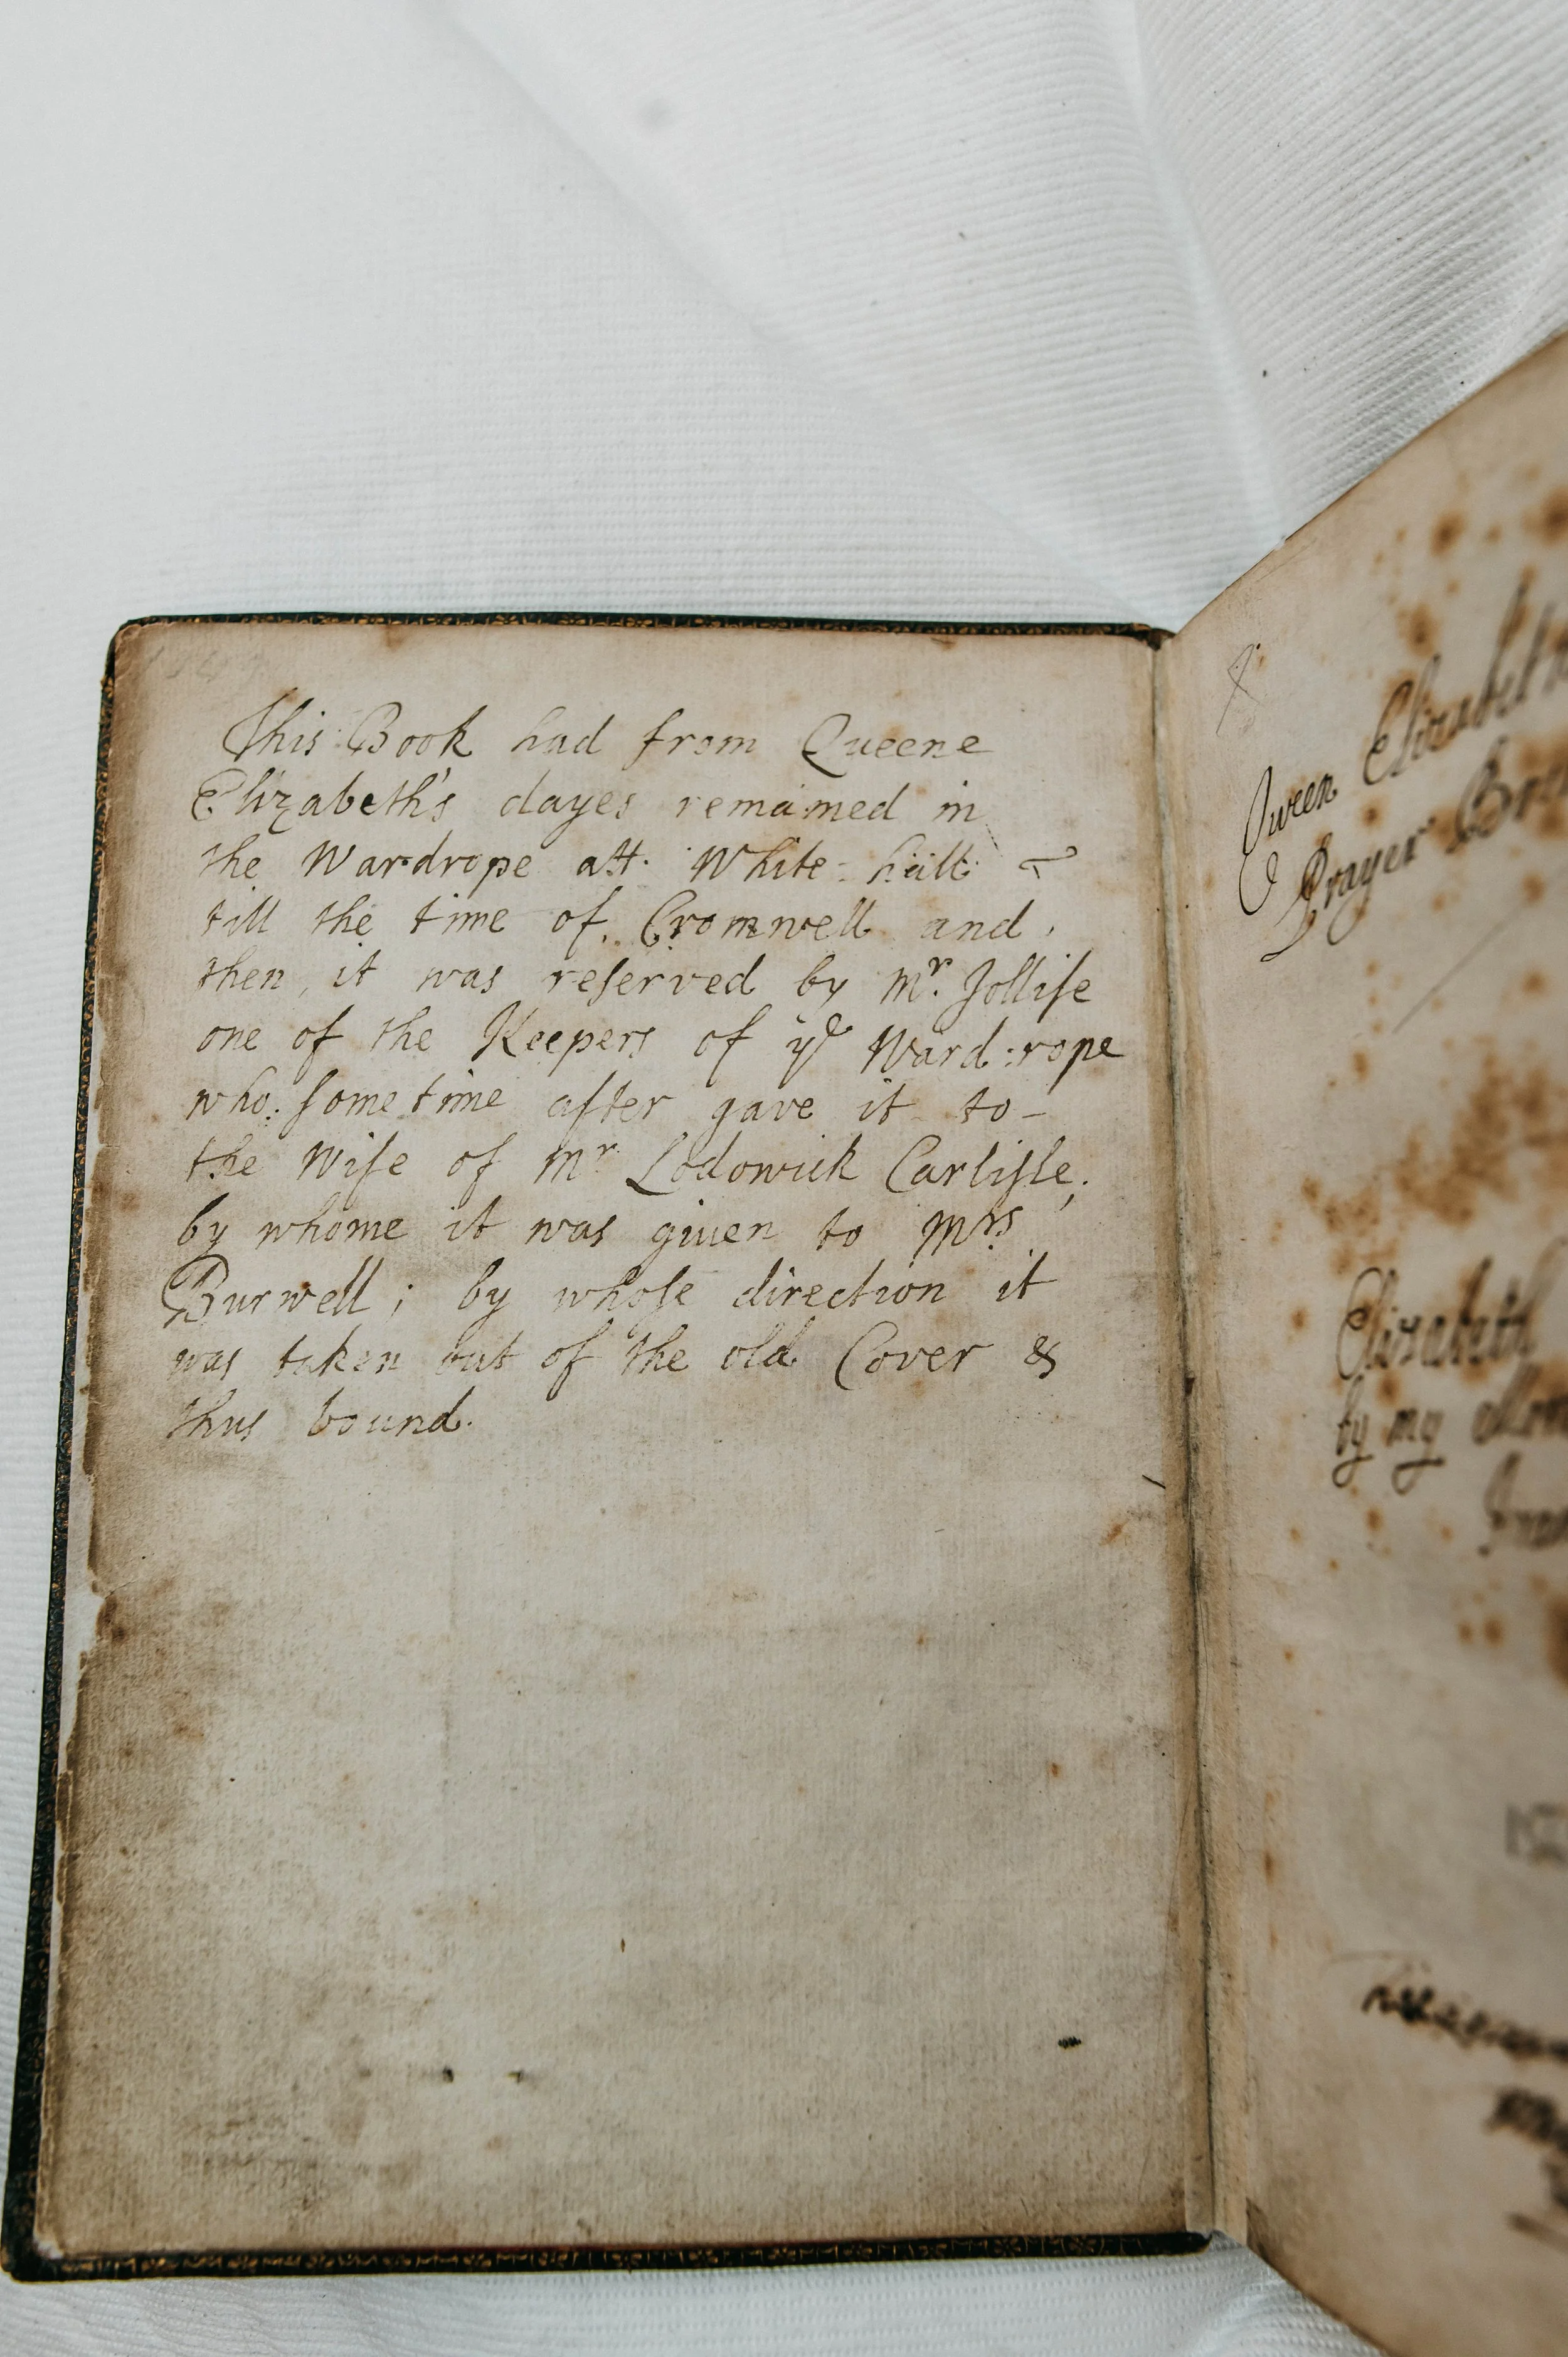 This Book had from Queene
Elizabeth's dayes remained in
the Wardrope att White-hall
till the time of Cromwell and
then, it was reſerved by Mr. Jolliſe
one of the Keepers of ye Ward:rope
who: ſometime after gave it to-
the Wife of Mr Lodowick Carliſle;
by whome it was given to Mrs
Burwell; by whoſe direction it
was taken out of the old Cover &
thus bound.
Queen Elizabeth
Prayer
Elizabeth
by my